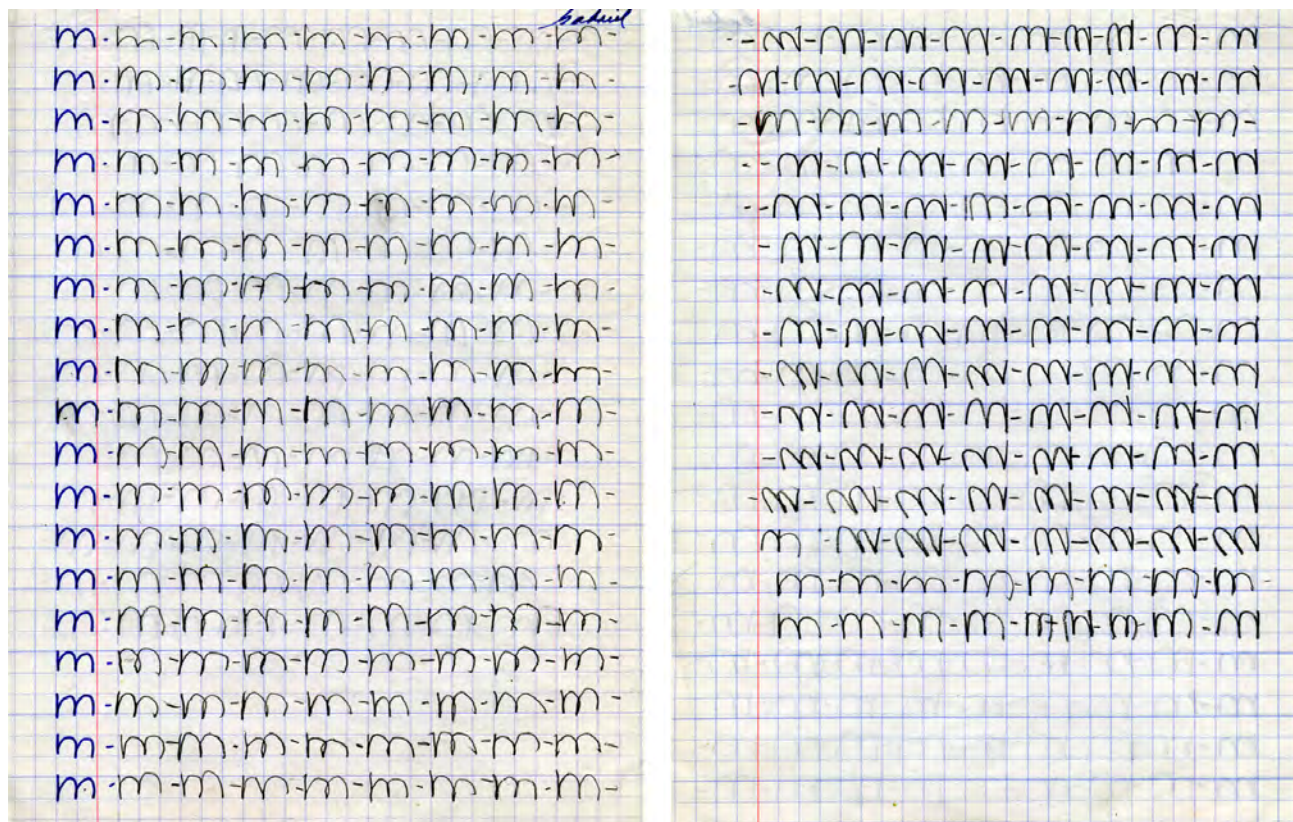 Gabriel
m - m - m - m - m - m - m - m - m -
m - m - m - m - m - m - m - m - m
m - m - m - m - m - m - m - m - m -
m - m - m - m - m - m - m - m - m -
m - m - m - m - m - m - m - m - m -
m - m - m - m - m - m - m - m - m -
m - m - m - m - m - m - m - m - m -
m - m - m - m - m - m - m - m - m -
m - m - m - m - m - m - m - m - m -
m - m - m - m - m - m - m - m - m -
m - m - m - m - m - m - m - m - m -
m - m - m - m - m - m - m - m - m -
m - m - m - m - m - m - m - m - m -
m - m - m - m - m - m - m - m - m -
m - m - m - m - m - m - m - m - m -
m - m - m - m - m - m - m - m - m -
m - m - m - m - m - m - m - m - m -
m - m - m - m - m - m - m - m - m -
m - m - m - m - m - m - m - m - m -
- - m - m - m - m - m - m - m - m - m
- m - m - m - m - m - m - m - m - m
- m - m - m - m - m - m - m - m -
- - m - m - m - m - m - m - m - m
- - m - m - m - m - m - m - m - m
- m - m - m - m - m - m - m - m
- m - m - m - m - m - m - m - m
- m - m - m - m - m - m - m - m
- m - m - m - m - m - m - m - m
- m - m - m - m - m - m - m - m
- m - m - m - m - m - m - m - m
- m - m - m - m - m - m - m - m
m - m - m - m - m - m - m - m
m - m - m - m - m - m - m - m -
m - m - m - m - m - m - m - m - m